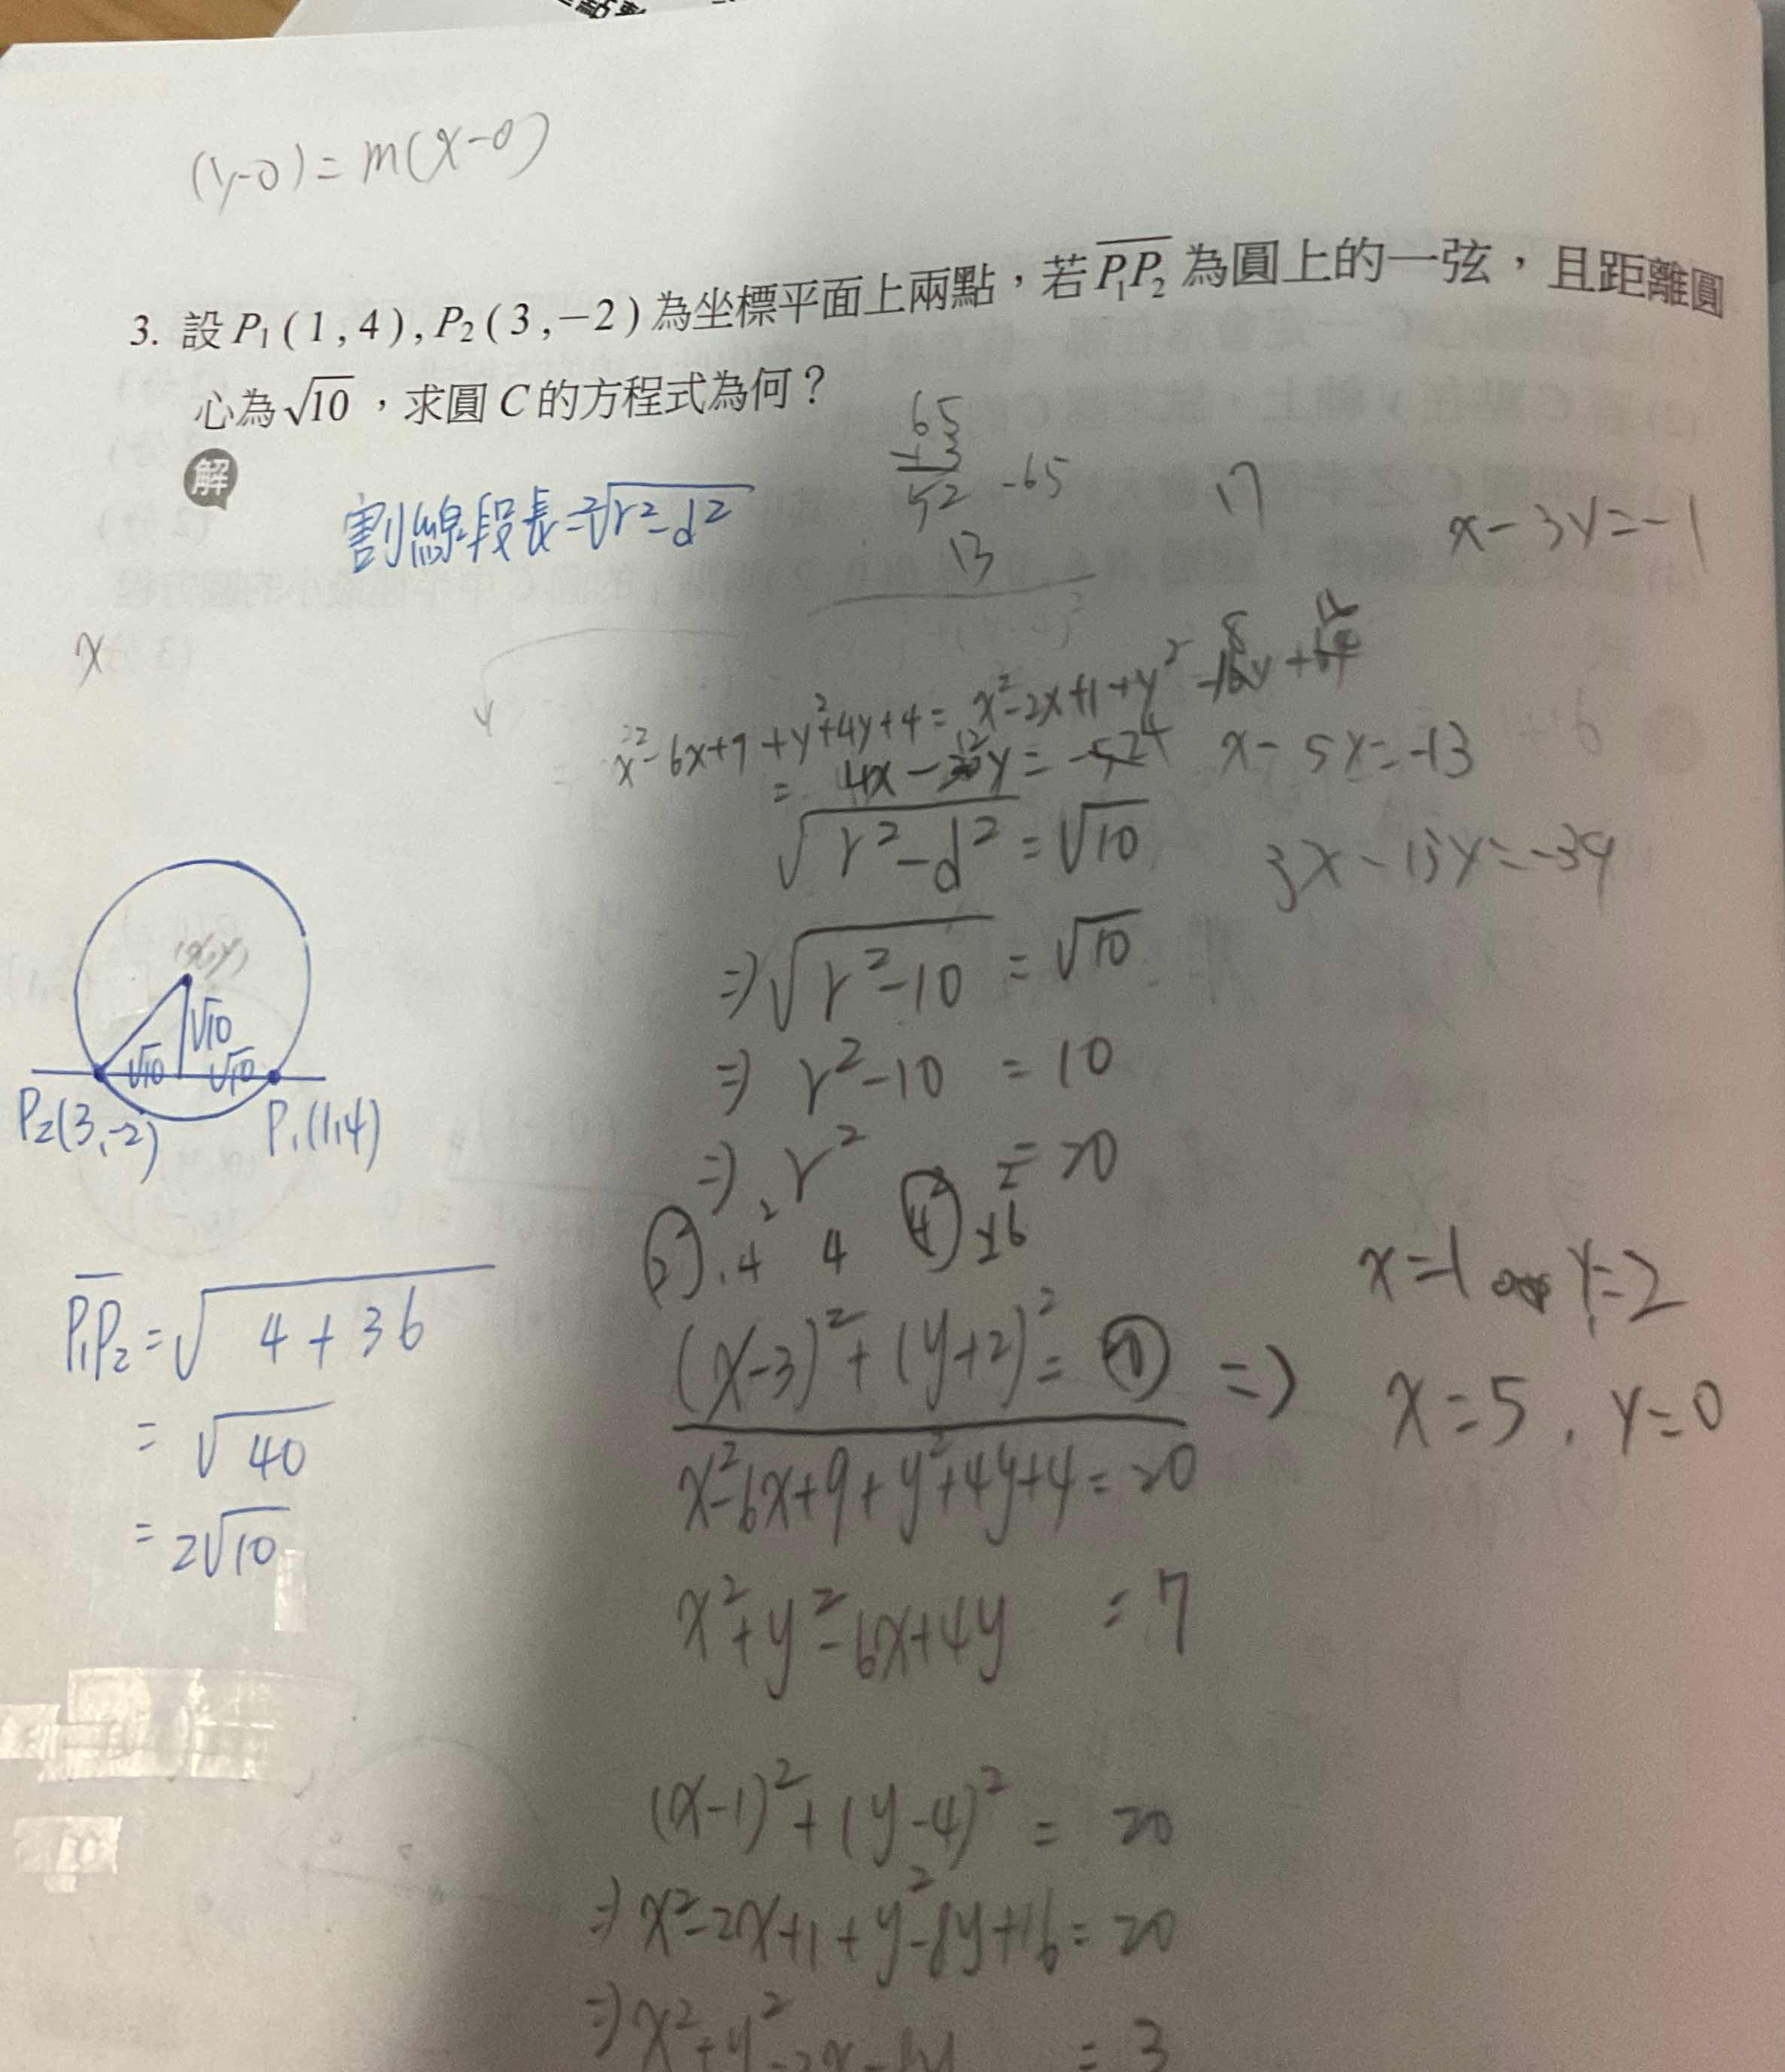 (y-0)=m(x-0)
3. 設 P₁(1,4),P₂(3,−2)為坐標平面上兩點,若 P₁P₂ 為圓上的一弦,且距離圓
心為√10,求圓 C 的方程式為何?
解
割線段長=2√(r²-d²)
65
52 -65
13
17
x-3y=-1
x
x²-6x+9+y²+4y+4=x²-2x+1+y²-8y+16
= 4x-12y=-4
x-5y=-13
√(r²-d²)=√10
3x-13y=-39
⇒√(r²-10)=√10
⇒ r²-10 =10
⇒ r² =20
(x,y)
√10
√10 √10
P₂(3,-2) P₁(1,4)
P₁P₂=√(4+36)
=√40
=2√10
2² 4² 4 4² 16
(x-3)²+(y+2)²= ⇒
x=-1 y=2
x=5, y=0
x²-6x+9+y²+4y+4=20
x²+y²-6x+4y =7
(x-1)²+(y-4)²= 20
⇒x²-2x+1+y²-8y+16=20
⇒x²+y²-2x-8y =3